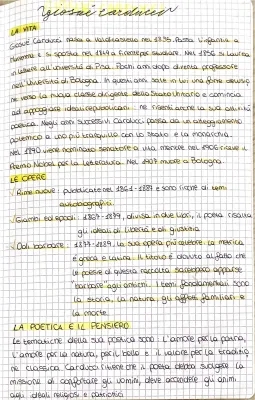 giosuè carducci
LA VITA
Giosuè Carducci nasce a Valdicastello nel 1835. Passa l'infanzia a
Maremma e si sposta nel 1849 a Firenze per studiare. Nel 1856 si laurea
in lettere all'università di Pisa. Pochi anni dopo diventa professore
nell'Università di Bologna. In questi anni nate in lui una forte delusio
ne verso la nuova classe dirigente dello Stato Unitario e comincia
ad appoggiare ideali repubblicani ne risente anche la sua attività
poetica. Negli anni successivi Carducci passa da un atteggiamento
polemico a uno più tranquillo con lo Stato e la monarchia.
Nel 1890 viene nominato senatore a vita, mentre nel 1906 riceve il
Premio Nobel per la Letteratura. Nel 1907 muore a Bologna.
LE OPERE
Rime nuove: pubblicate nel 1861-1887 e sono ricche di temi
autobiografici.
Giambi ed epodi: 1867-1879, divisa in due libri, il poeta risalta
gli ideali di libertà e di giustizia
Odi barbare: 1877-1889, la sua opera più celebre. La metrica
è greca e latina. Il titolo è dovuto al fatto che
le poesie di questa raccolta sarebbero apparse
"barbare" agli antichi. I temi fondamentali sono
la storia, la natura, gli affetti familiari e
la morte.
LA POETICA E IL PENSIERO
Le tematiche della sua poetica sono: l'amore per la patria,
l'amore per la natura, per il bello e il valore per la tradizio
ne classica. Carducci ritiene che il poeta debba svolgere la
missione di confortare gli uomini, deve accendere gli animi
agli ideali religiosi e patriottici